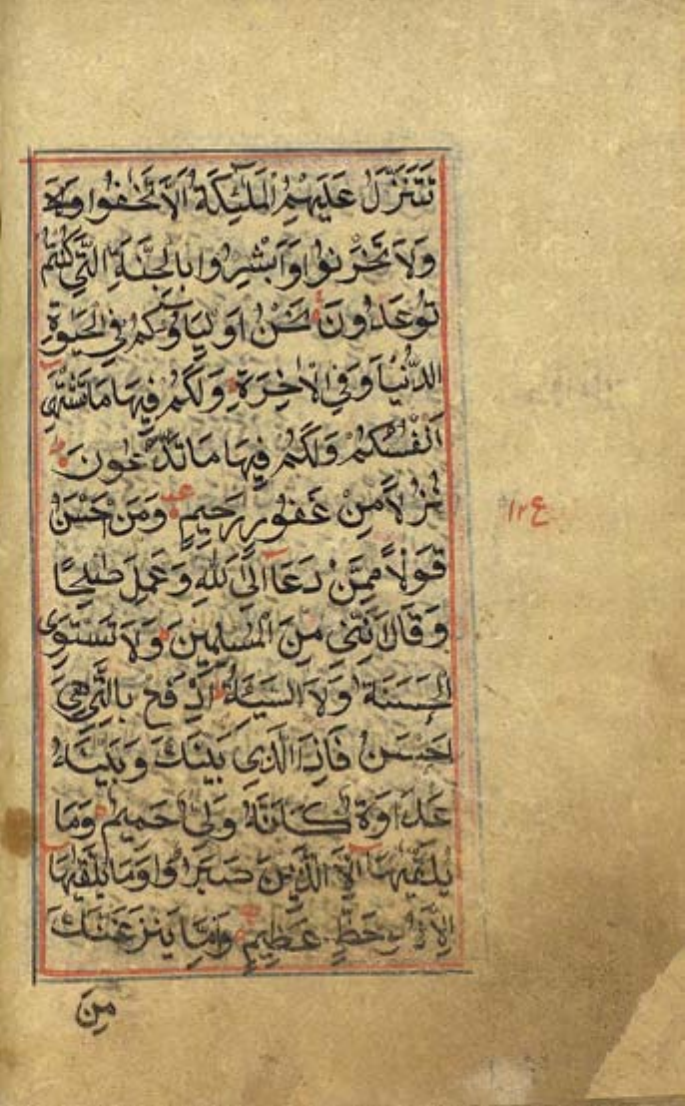 تَتَنَزَّلُ عَلَيْهِمُ الْمَلٰئِكَةُ اَلَّا تَخَفُوا وَلَا
وَلَا تَحْزَنُوا وَاَبْشِرُوا بِالْجَنَّةِ الَّتِي كُنْتُمْ
تُوعَدُونَ نَحْنُ اَوْلِيَاؤُكُمْ فِي الْحَيٰوةِ
الدُّنْيَا وَفِي الْاٰخِرَةِ وَلَكُمْ فِيهَا مَا تَشْتَهِي
اَنْفُسُكُمْ وَلَكُمْ فِيهَا مَا تَدَّعُونَ
نُزُلًا مِنْ غَفُورٍ رَحِيمٍ وَمَنْ اَحْسَنُ
قَوْلًا مِمَّنْ دَعَا اِلَى اللّٰهِ وَعَمِلَ صٰلِحًا
وَقَالَ اِنَّنِي مِنَ الْمُسْلِمِينَ وَلَا تَسْتَوِي
الْحَسَنَةُ وَلَا السَّيِّئَةُ اِدْفَعْ بِالَّتِي هِيَ
اَحْسَنُ فَاِذَا الَّذِي بَيْنَكَ وَبَيْنَهُ
عَدَاوَةٌ كَاَنَّهُ وَلِيٌّ حَمِيمٌ وَمَا
يُلَقّٰيهَا اِلَّا الَّذِينَ صَبَرُوا وَمَا يُلَقّٰيهَا
اِلَّا ذُو حَظٍّ عَظِيمٍ وَاِمَّا يَنْزَغَنَّكَ
مِنَ
١٢٤